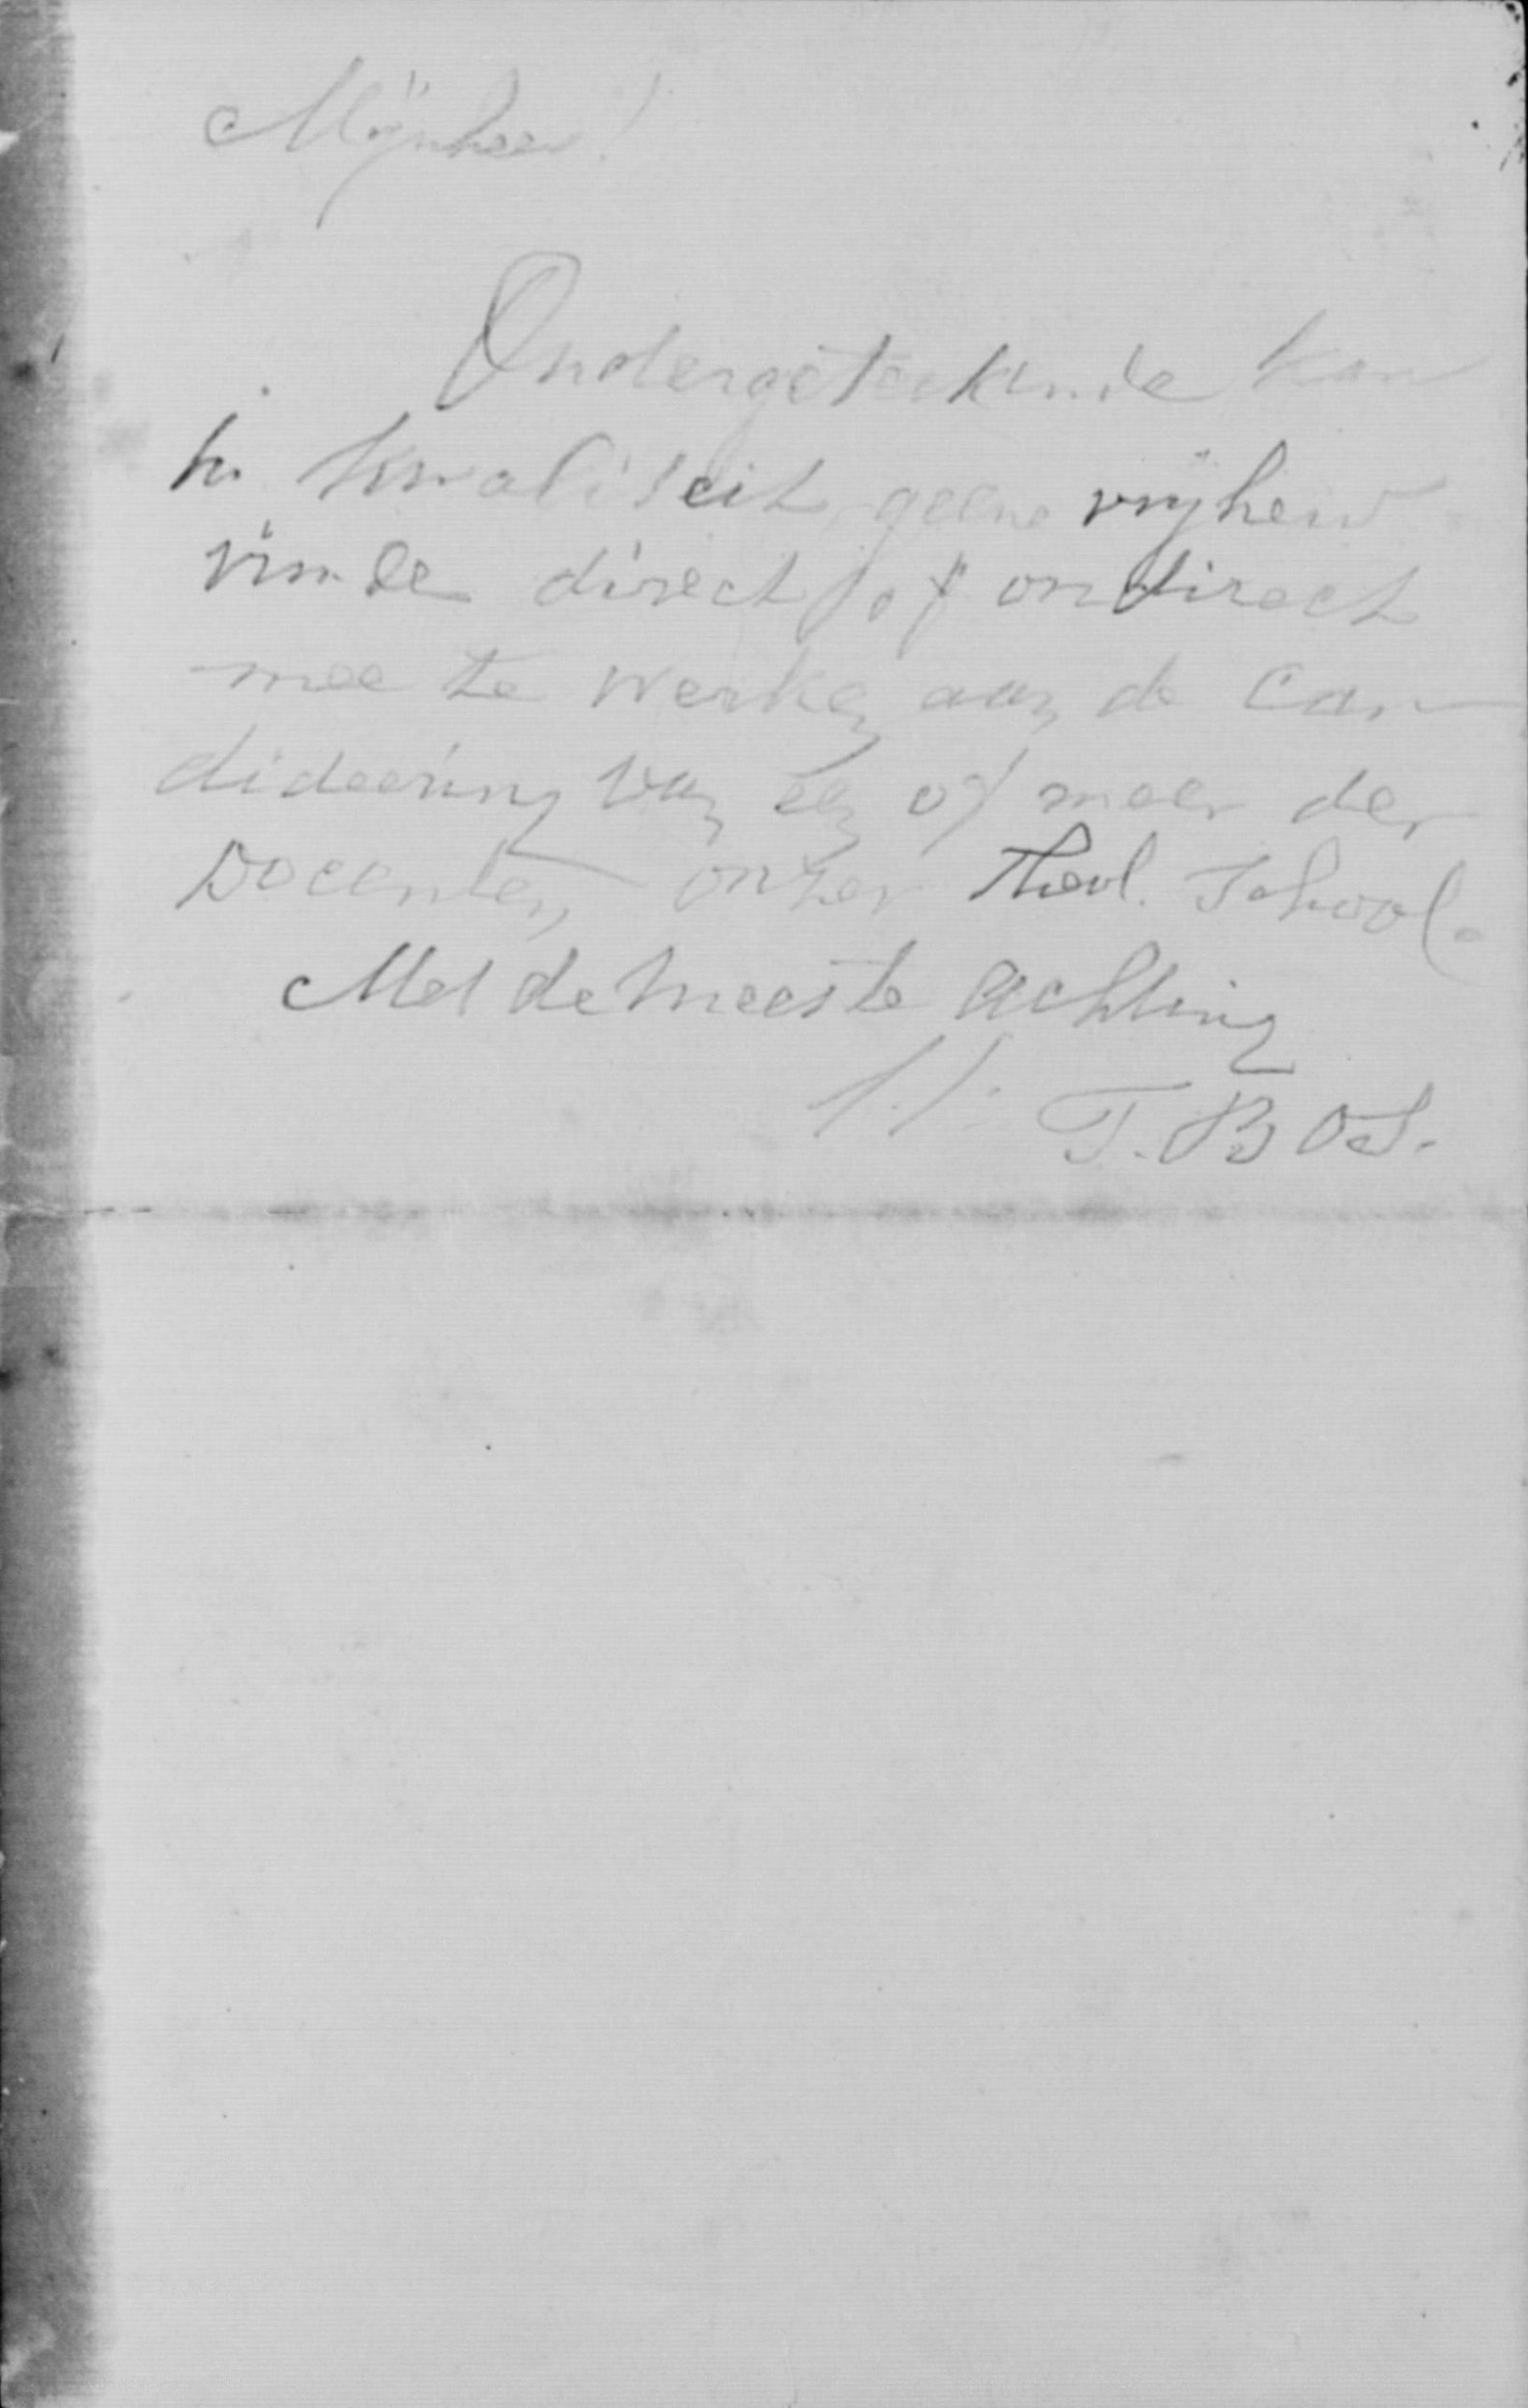 Mijnheer!
Ondergeteekende kan
in kwaliteit geene vrijheid
vinde direct of ondirect
mee te werken aan de can
dideering van een of meer der
Docenten onzer Theol. School.
Met de meeste achting
T. BOS.